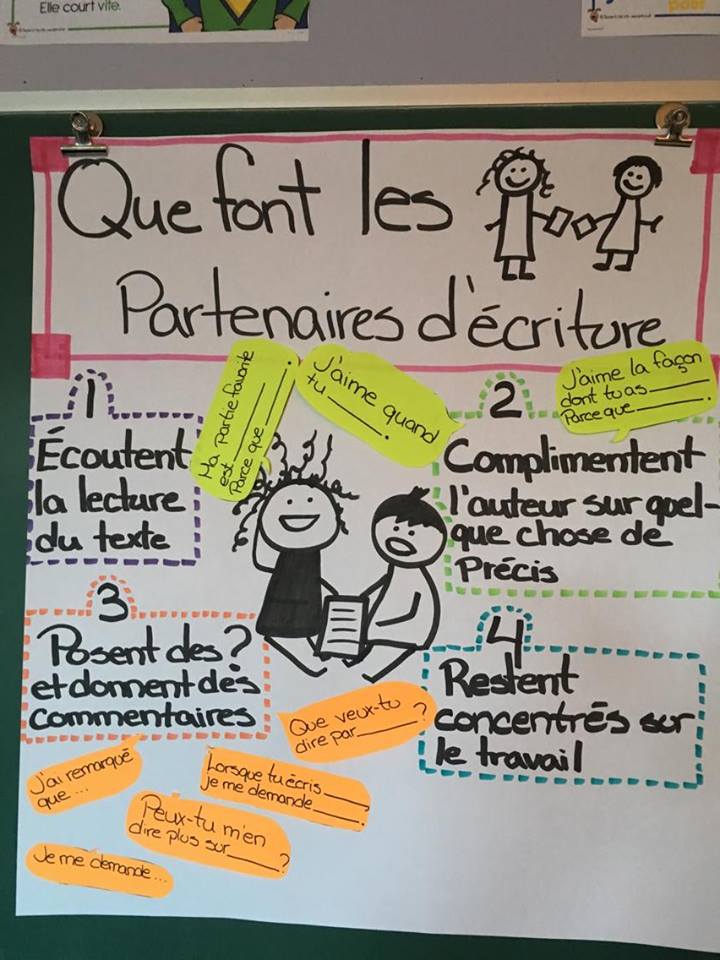 Elle court vite.
pour
Que font les
Partenaires d'écriture
1
Écoutent
la lecture
du texte
Ma partie favorite
est ______.
Parce que ______.
J'aime quand
tu ______.
2
J'aime la façon
dont tu as ______
Parce que ______.
Complimentent
l'auteur sur quel-
que chose de
Précis
3
Posent des ?
et donnent des
commentaires
4
Restent
concentrés sur
le travail
Que veux-tu
dire par ______?
J'ai remarqué
que...
Lorsque tu écris ______
Je me demande ______?
Peux-tu m'en
dire plus sur ______?
Je me demande...